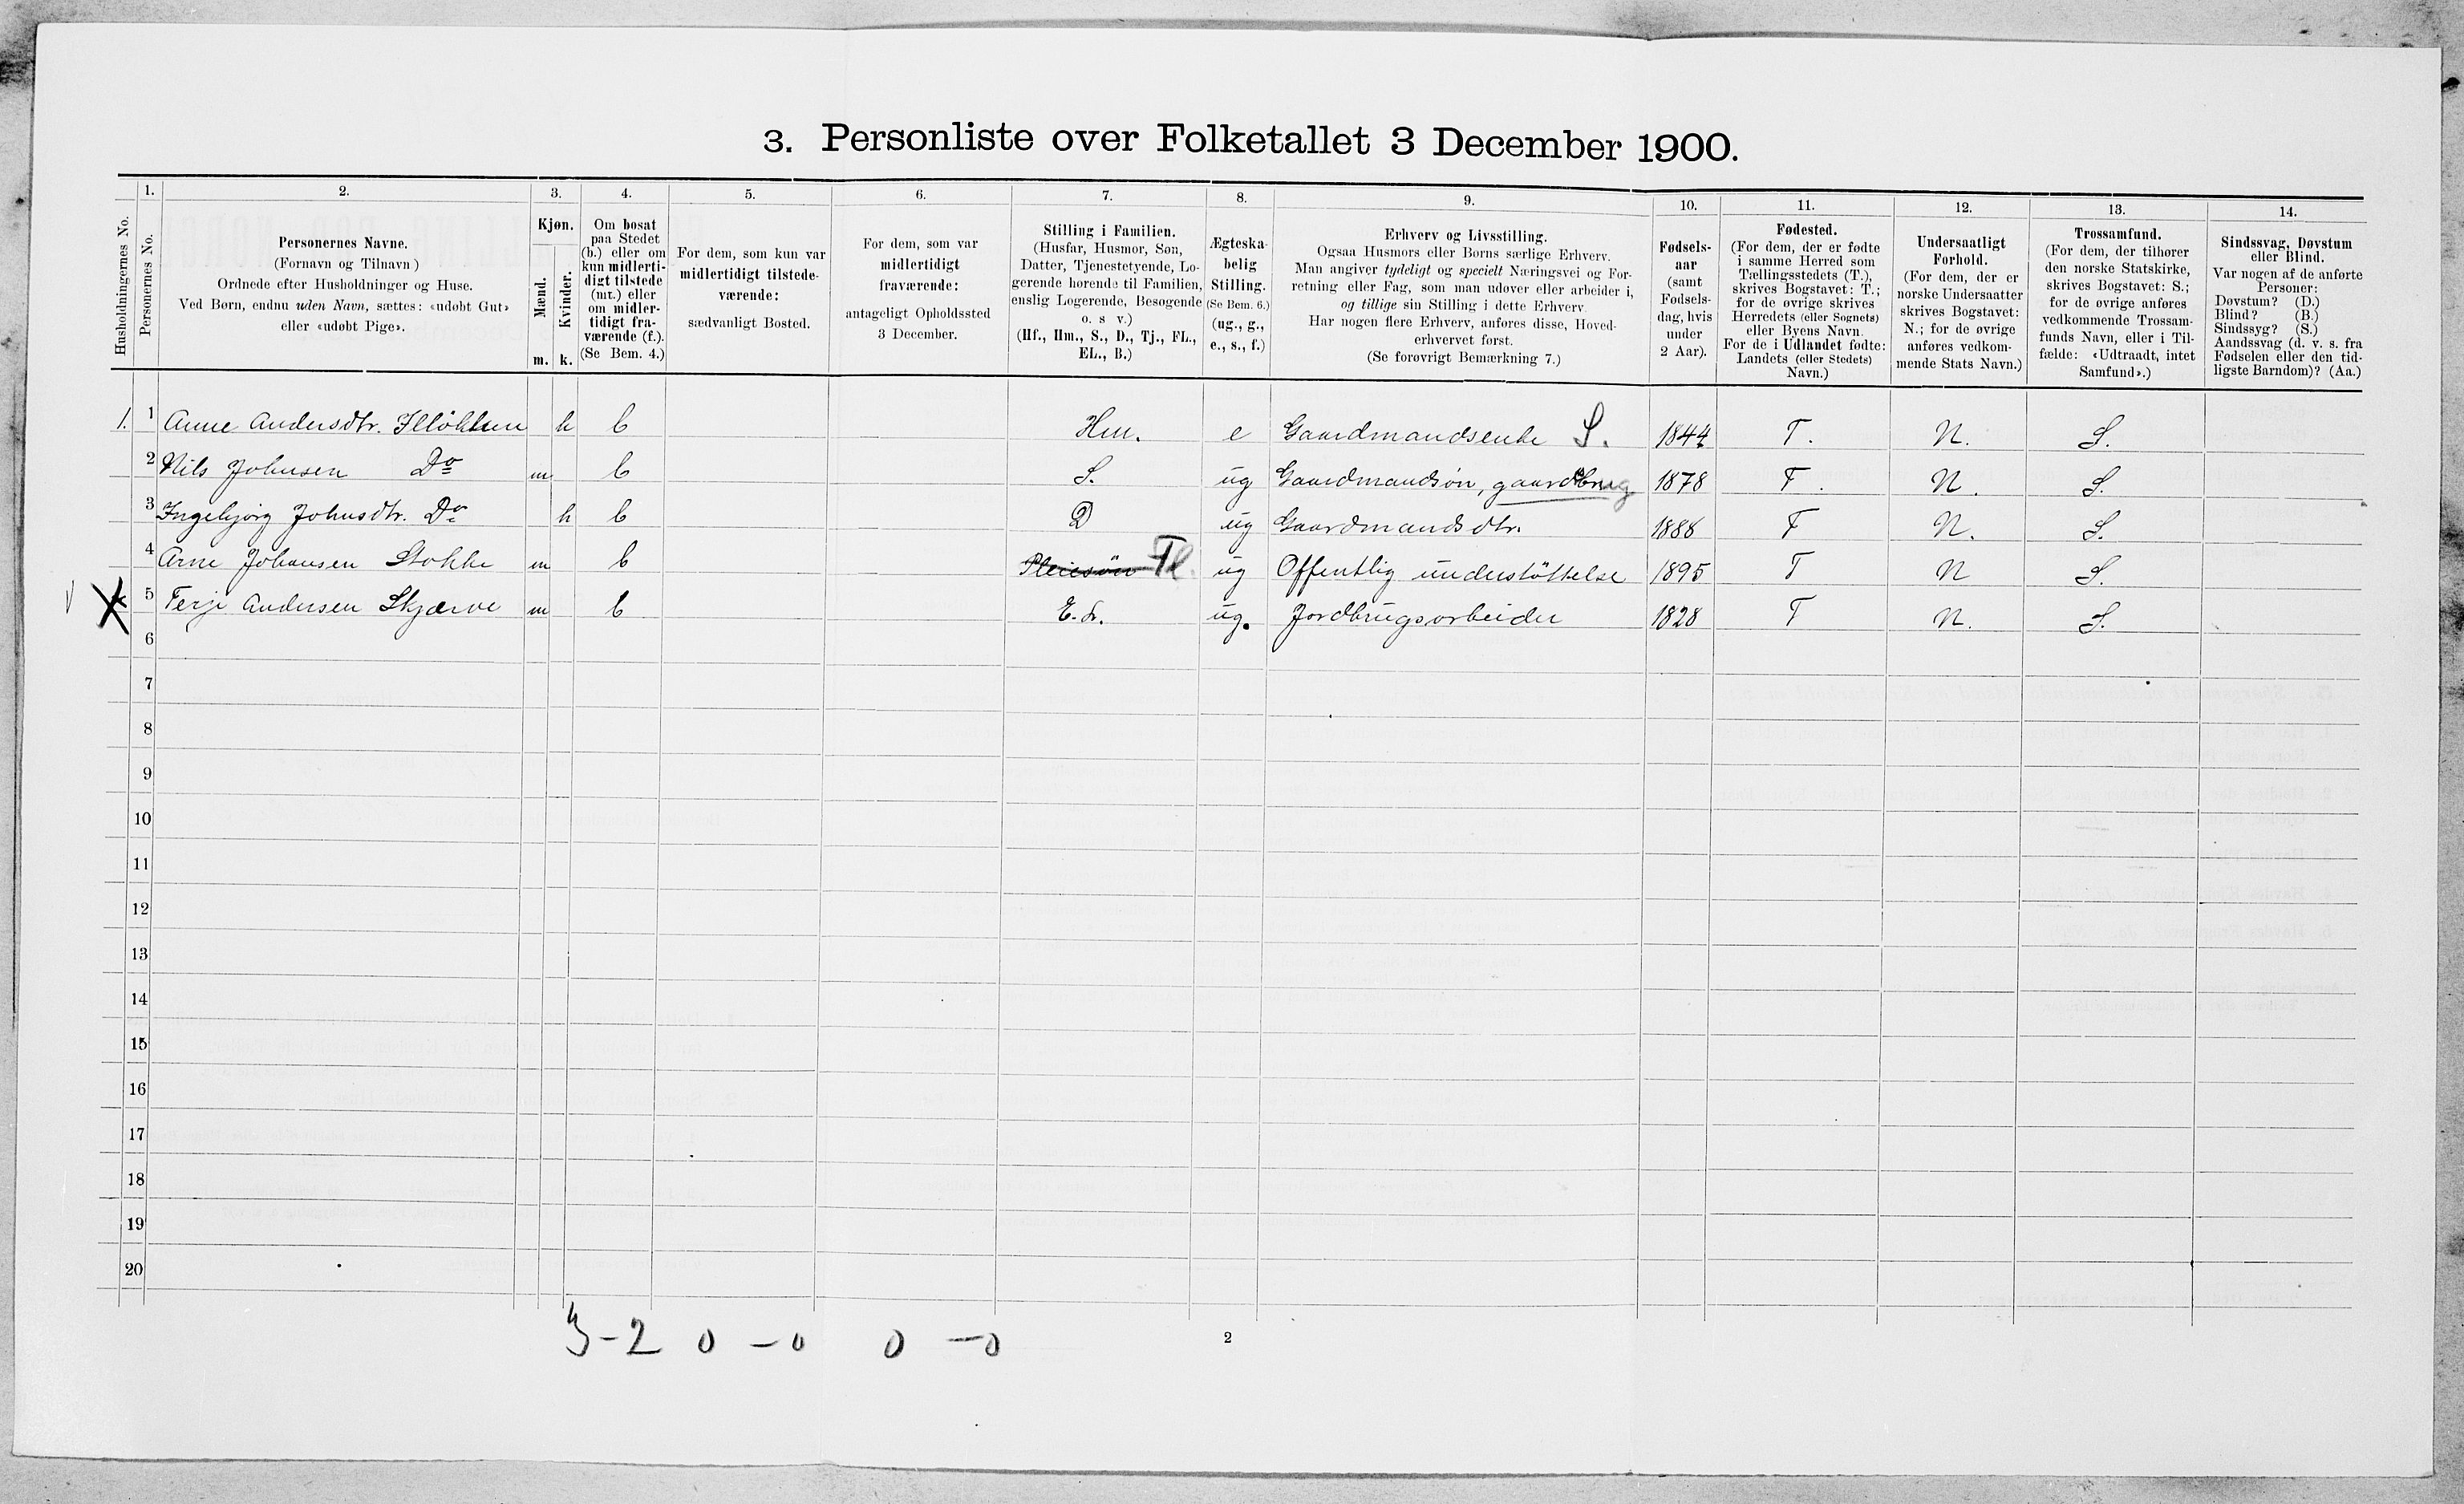 3. Personliste over Folketallet 3 December 1900.
1. 2. 3. 4. 5. 6. 7. 8. 9. 10. 11. 12. 13. 14.
Husholdningernes No.
Personernes No.
Personernes Navne.
(Fornavn og Tilnavn )
Ordnede efter Husholdninger og Huse.
Ved Børn, endnu uden Navn, sættes: «udøbt Gut»
eller «udøbt Pige».
Kjøn.
Mænd.
m.
Kvinder.
k.
Om bosat
paa Stedet
(b.) eller om
kun midlerti-
digt tilstede
(mt.) eller
om midler-
tidigt fra-
værende (f.).
(Se Bem. 4.)
For dem, som kun var
midlertidigt tilstede-
værende:
sædvanligt Bosted.
For dem, som var
midlertidigt
fraværende:
antageligt Opholdssted
3 December.
Stilling i Familien.
(Husfar, Husmor, Søn,
Datter, Tjenestetyende, Lo-
gerende hørende til Familien,
enslig Logerende, Besøgende
o. s v.)
(Hf., Hm., S., D., Tj., FL.,
EL., B.)
Ægteska-
belig
Stilling.
(Se Bem. 6.)
(ug., g.,
e., s., f.)
Erhverv og Livsstilling.
Ogsaa Husmors eller Børns særlige Erhverv.
Man angiver tydeligt og specielt Næringsvei og For-
retning eller Fag, som man udøver eller arbeider i,
og tillige sin Stilling i dette Erhverv.
Har nogen flere Erhverv, anføres disse, Hoved-
erhvervet først.
(Se forøvrigt Bemærkning 7.)
Fødsels-
aar
(samt
Fødsels-
dag, hvis
under
2 Aar).
Fødested.
(For dem, der er fødte
i samme Herred som
Tællingsstedets (T.),
skrives Bogstavet: T.;
for de øvrige skrives
Herredets (eller Sognets)
eller Byens Navn.
For de i Udlandet fødte:
Landets (eller Stedets)
Navn.)
Undersaatligt
Forhold.
(For dem, der er
norske Undersaatter
skrives Bogstavet:
N.; for de øvrige
anføres vedkom-
mende Stats Navn.)
Trossamfund.
(For dem, der tilhører
den norske Statskirke,
skrives Bogstavet: S.;
for de øvrige anføres
vedkommende Trossam-
funds Navn, eller i Til-
fælde: «Udtraadt, intet
Samfund».)
Sindssvag, Døvstum
eller Blind.
Var nogen af de anførte
Personer:
Døvstum? (D.)
Blind? (B.)
Sindssyg? (S.)
Aandssvag (d. v. s. fra
Fødselen eller den tid-
ligste Barndom)? (Aa.)
1. 1 Anne Andersdtr. k b Hm. e Gaardmandsenke S. 1844 T. N. S.
2 Nils Johnsen Do m b S. ug Gaardmandsøn, gaardbrug 1878 T. N. S.
3 Ingebjørg Johnsdtr. Do k b D ug Gaardmandsdtr. 1888 T N. S.
4 Arne Johansen Stokke m b Pleiesøn Fl. ug Offentlig understøttelse 1895 T N S.
X 5 Terje Andersen Skjærve m b E.L. ug. Jordbrugsarbeider 1828 T N. S.
6
7
8
9
10
11
12
13
14
15
16
17
18
19
20
3-2 0-0 0-0
2